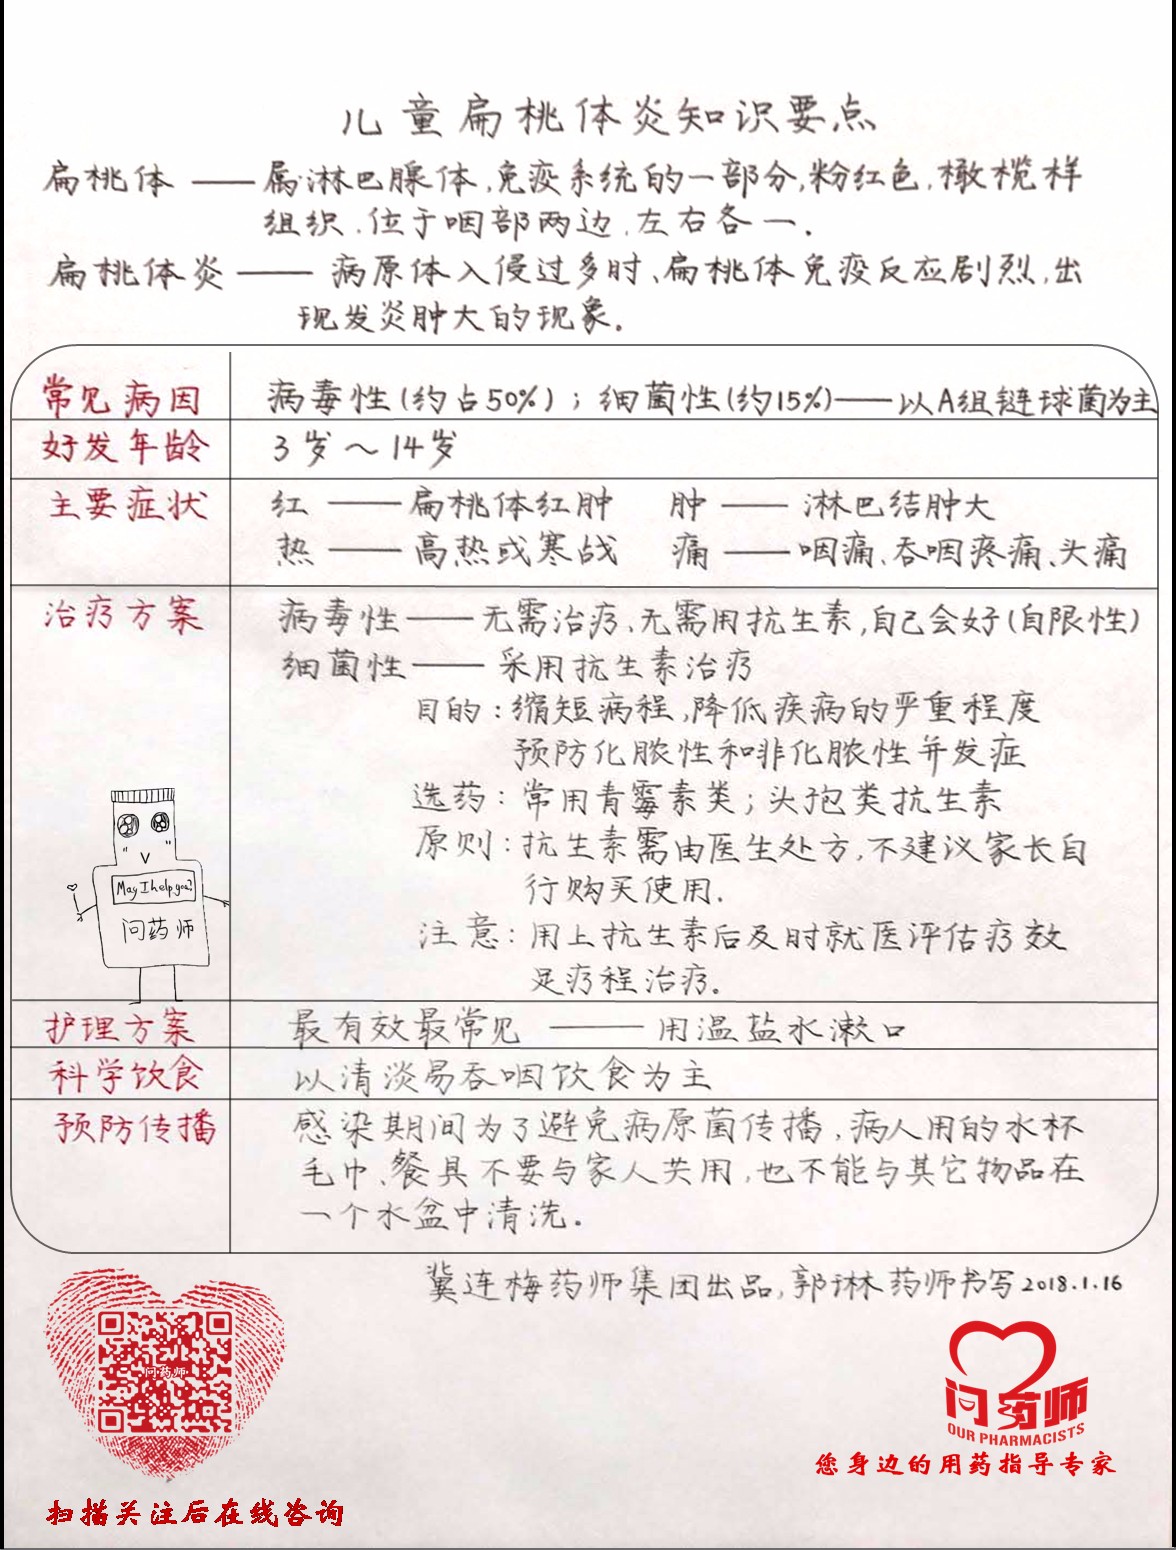 儿童扁桃体炎知识要点
扁桃体 —— 属淋巴腺体,免疫系统的一部分,粉红色,橄榄样
组织.位于咽部两边.左右各一.
扁桃体炎 —— 病原体入侵过多时、扁桃体免疫反应剧烈,出
现发炎肿大的现象.
常见病因 病毒性(约占50%);细菌性(约15%)——以A组链球菌为主
好发年龄 3岁~14岁
主要症状 红 —— 扁桃体红肿 肿 —— 淋巴结肿大
热 —— 高热或寒战 痛 —— 咽痛、吞咽疼痛、头痛
治疗方案 病毒性——无需治疗、无需用抗生素,自己会好(自限性)
细菌性—— 采用抗生素治疗
目的:缩短病程,降低疾病的严重程度
预防化脓性和非化脓性并发症
选药:常用青霉素类;头孢类抗生素
原则:抗生素需由医生处方,不建议家长自
行购买使用.
注意:用上抗生素后及时就医评估疗效
足疗程治疗.
May I help you?
问药师
护理方案 最有效最常见 —— 用温盐水漱口
科学饮食 以清淡易吞咽饮食为主
预防传播 感染期间为了避免病原菌传播,病人用的水杯
毛巾、餐具不要与家人共用,也不能与其它物品在
一个水盆中清洗.
冀连梅药师集团出品,郭琳药师书写2018.1.16
问药师
问药师
OUR PHARMACISTS
您身边的用药指导专家
扫描关注后在线咨询